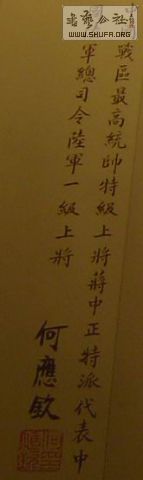 書藝公社
WWW.SHUFA.ORG
戰區最高統帥特級上將蔣中正特派代表中
軍總司令陸軍一級上將
何應欽